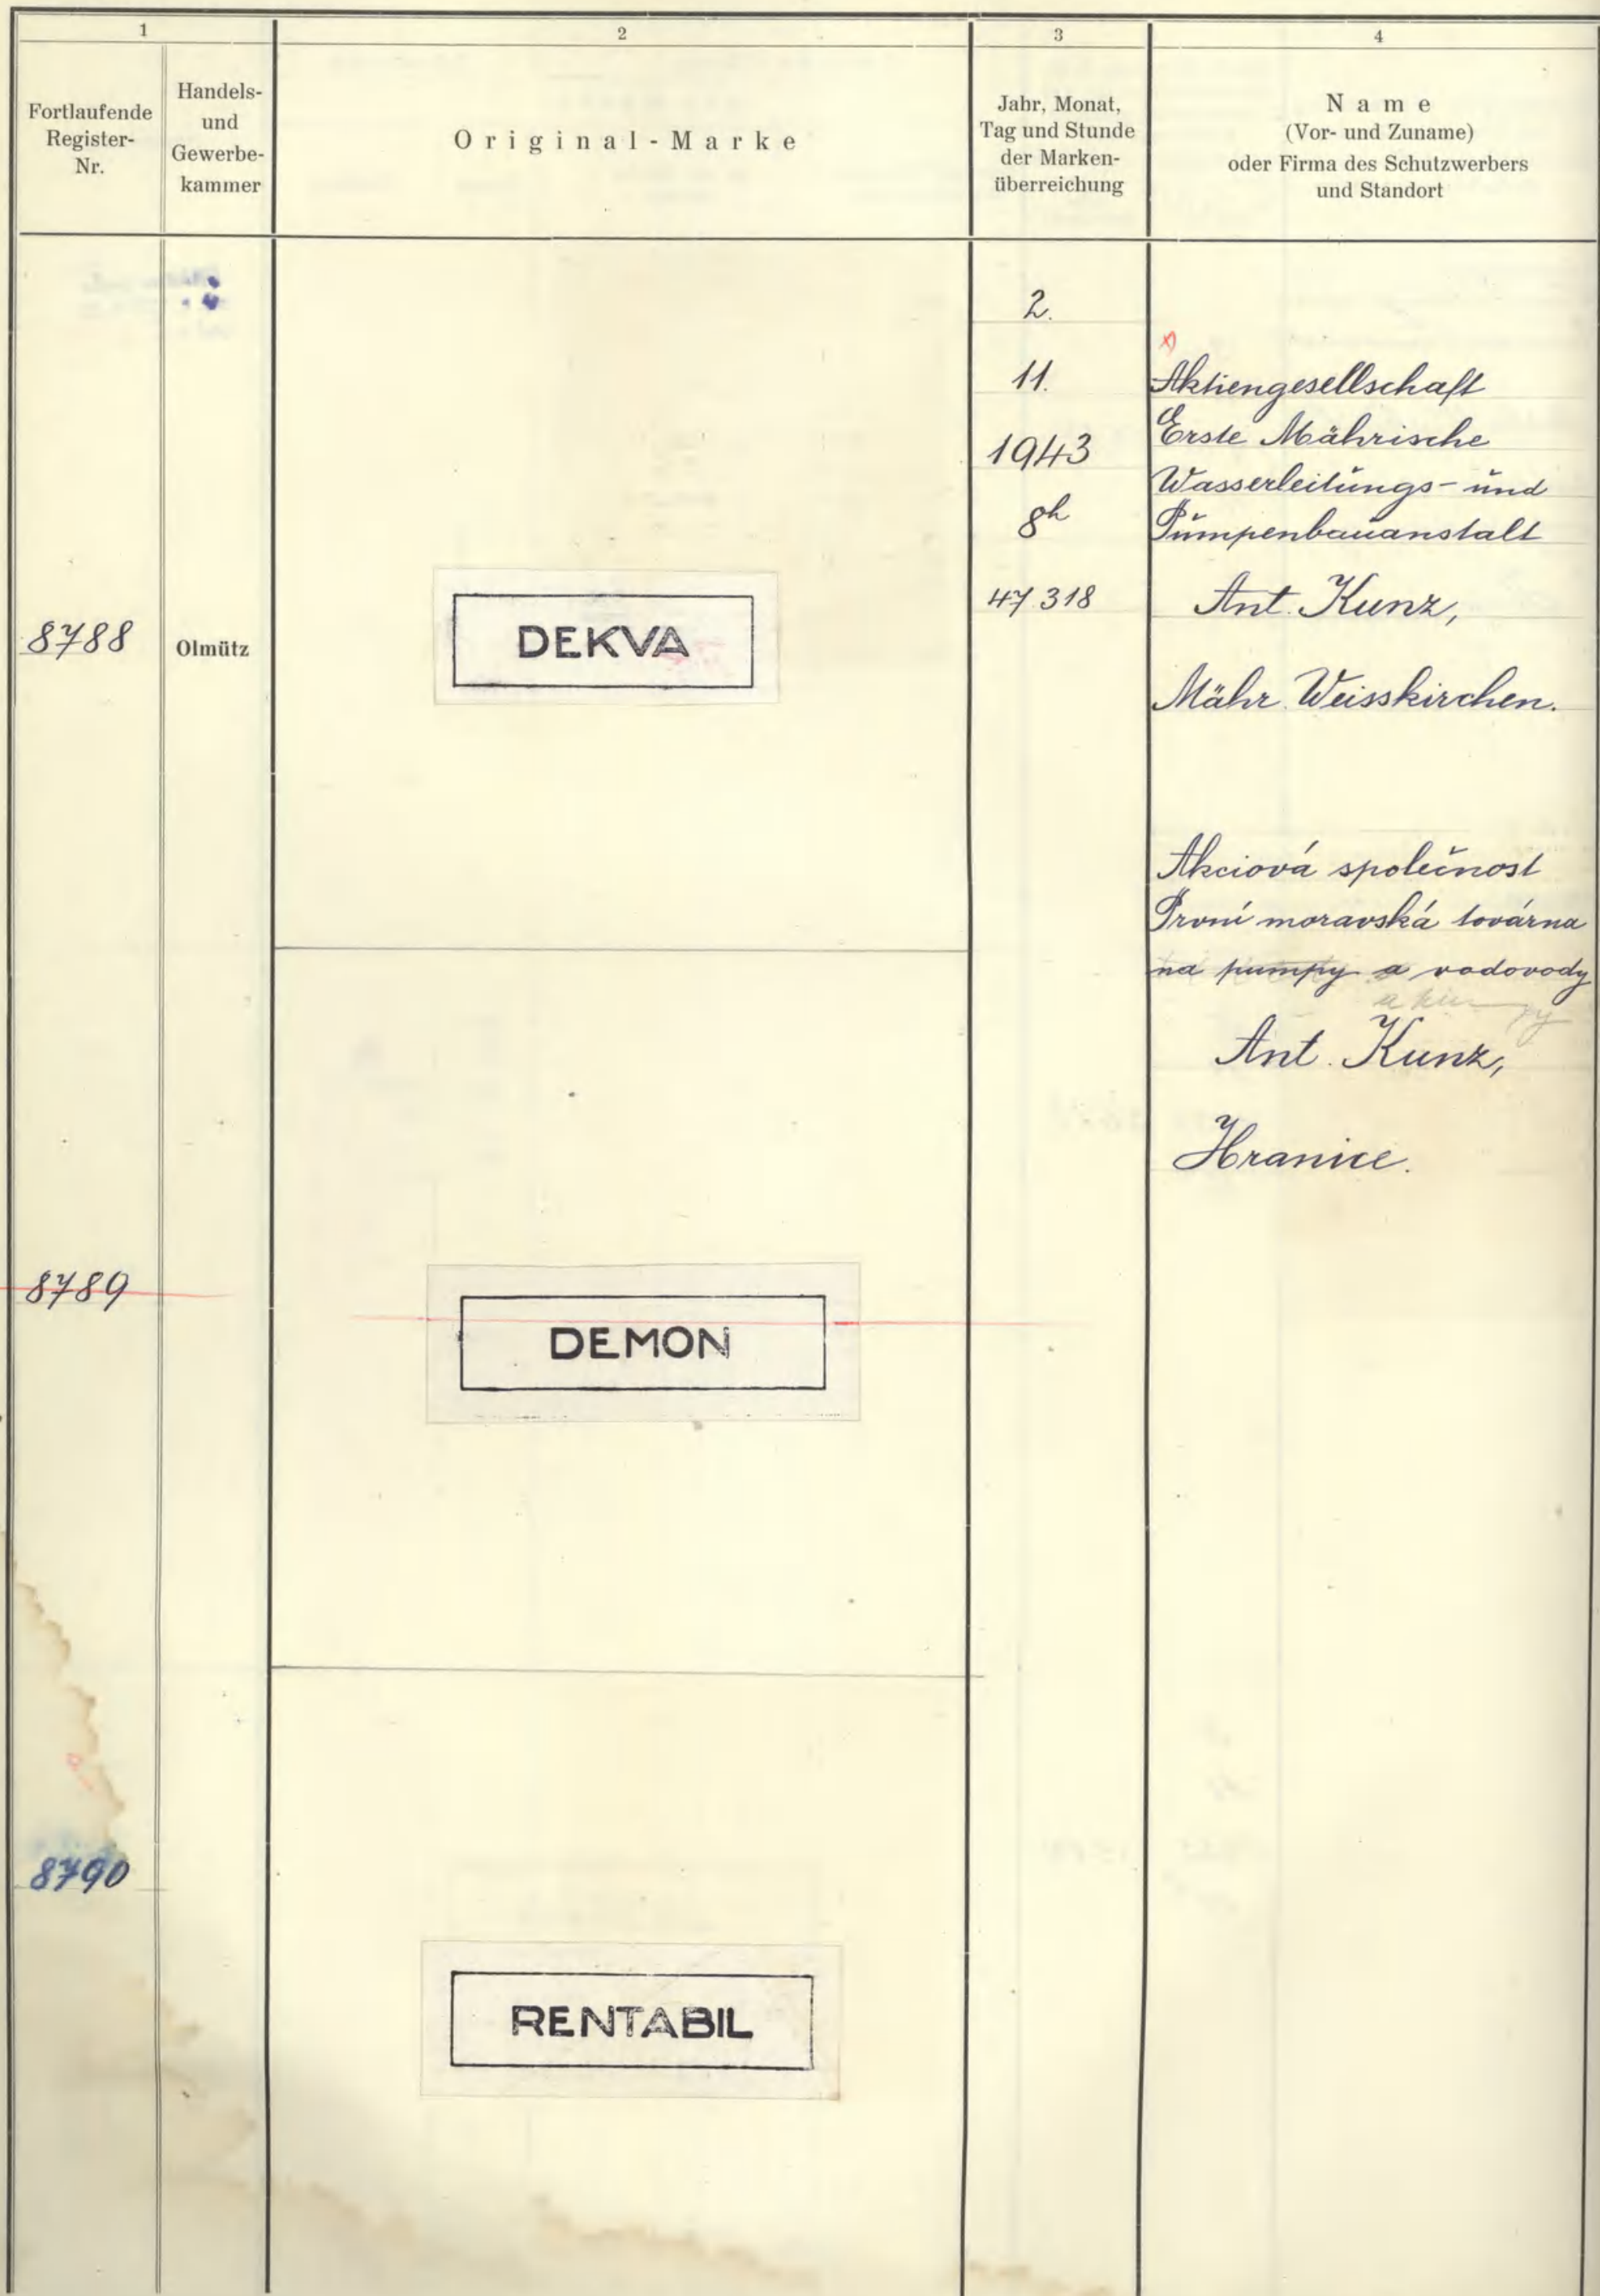 1
2
3
4
Fortlaufende
Register-
Nr.
Handels-
und
Gewerbe-
kammer
Original-Marke
Jahr, Monat,
Tag und Stunde
der Marken-
überreichung
Name
(Vor- und Zuname)
oder Firma des Schutzwerbers
und Standort
8788
Olmütz
DEKVA
2.
11.
1943
8h
47.318
x)
Aktiengesellschaft
Erste Mährische
Wasserleitungs- und
Pumpenbauanstalt
Ant. Kunz,
Mähr. Weisskirchen.
Akciová společnost
První moravská továrna
na pumpy a vodovody
Ant. Kunz,
Hranice.
8789
DEMON
8790
RENTABIL